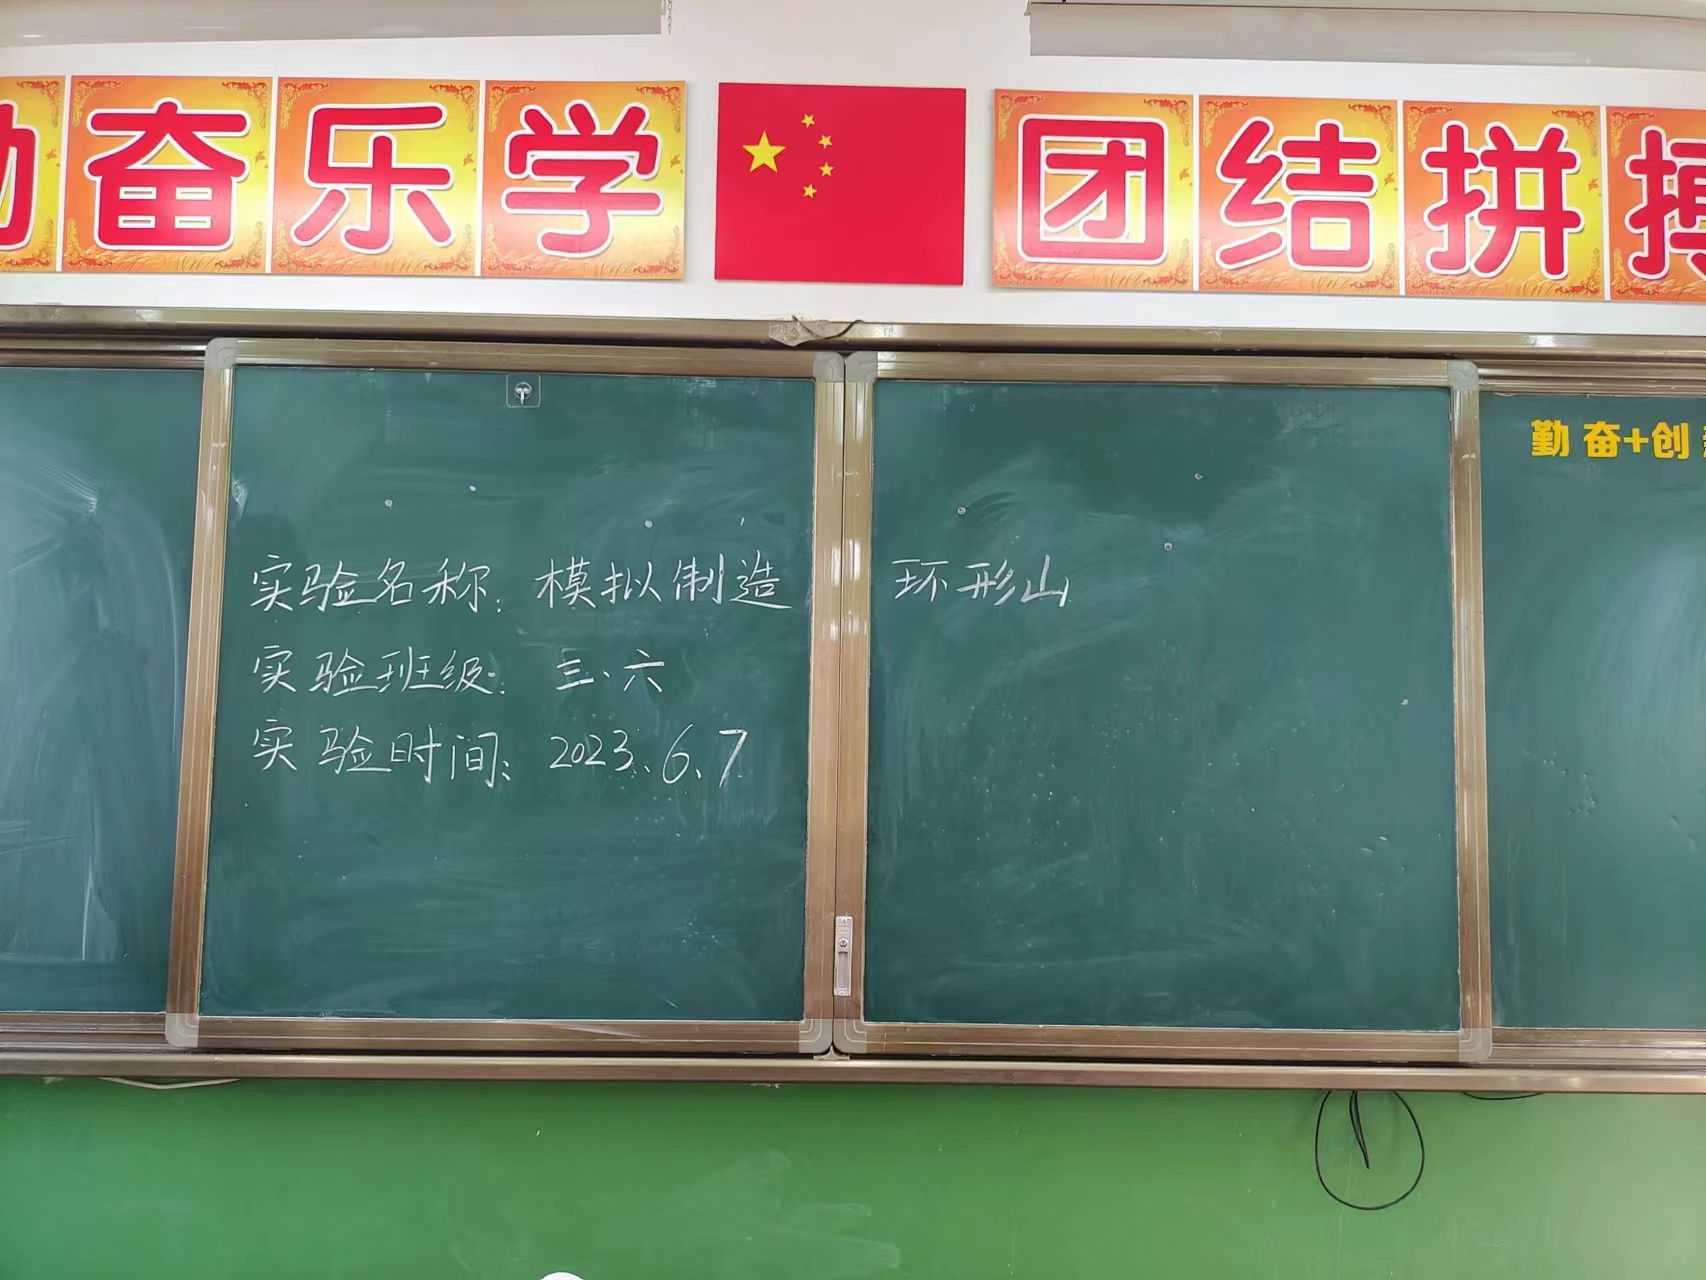 奋乐学 团结拼
勤奋+创
实验名称：模拟制造环形山
实验班级：三、六
实验时间：2023、6、7